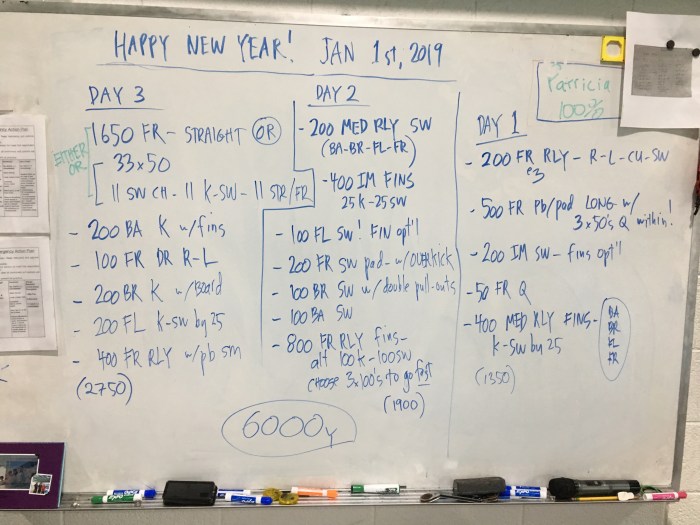 HAPPY NEW YEAR! JAN 1st, 2019
DAY 3
EITHER OR
1650 FR - STRAIGHT OR
33x50
11 SW CH - 11 K-SW - 11 STR/FR
- 200 BA K w/fins
- 100 FR DR R-L
- 200 BR K w/Board
- 200 FL K-SW by 25
- 400 FR RLY w/pb sm
(2750)
DAY 2
- 200 MED RLY SW
(BA-BR-FL-FR)
- 400 IM FINS
25 K - 25 SW
- 100 FL SW! FIN opt'l
- 200 FR SW pad - w/OVERKick
- 100 BR SW w/double pull-outs
- 100 BA SW
- 800 FR RLY fins -
alt 100 K - 100 SW
CHOOSE 3x100's to go fast
(1900)
DAY 1
- 200 FR RLY - R-L-CU-SW
e3
- 500 FR Pb/pad LONG w/
3x50's Q within!
- 200 IM SW - fins opt'l
- 50 FR Q
- 400 MED RLY FINS -
K-SW by 25
BA
BR
FL
FR
(1350)
6000y
Patricia
100%